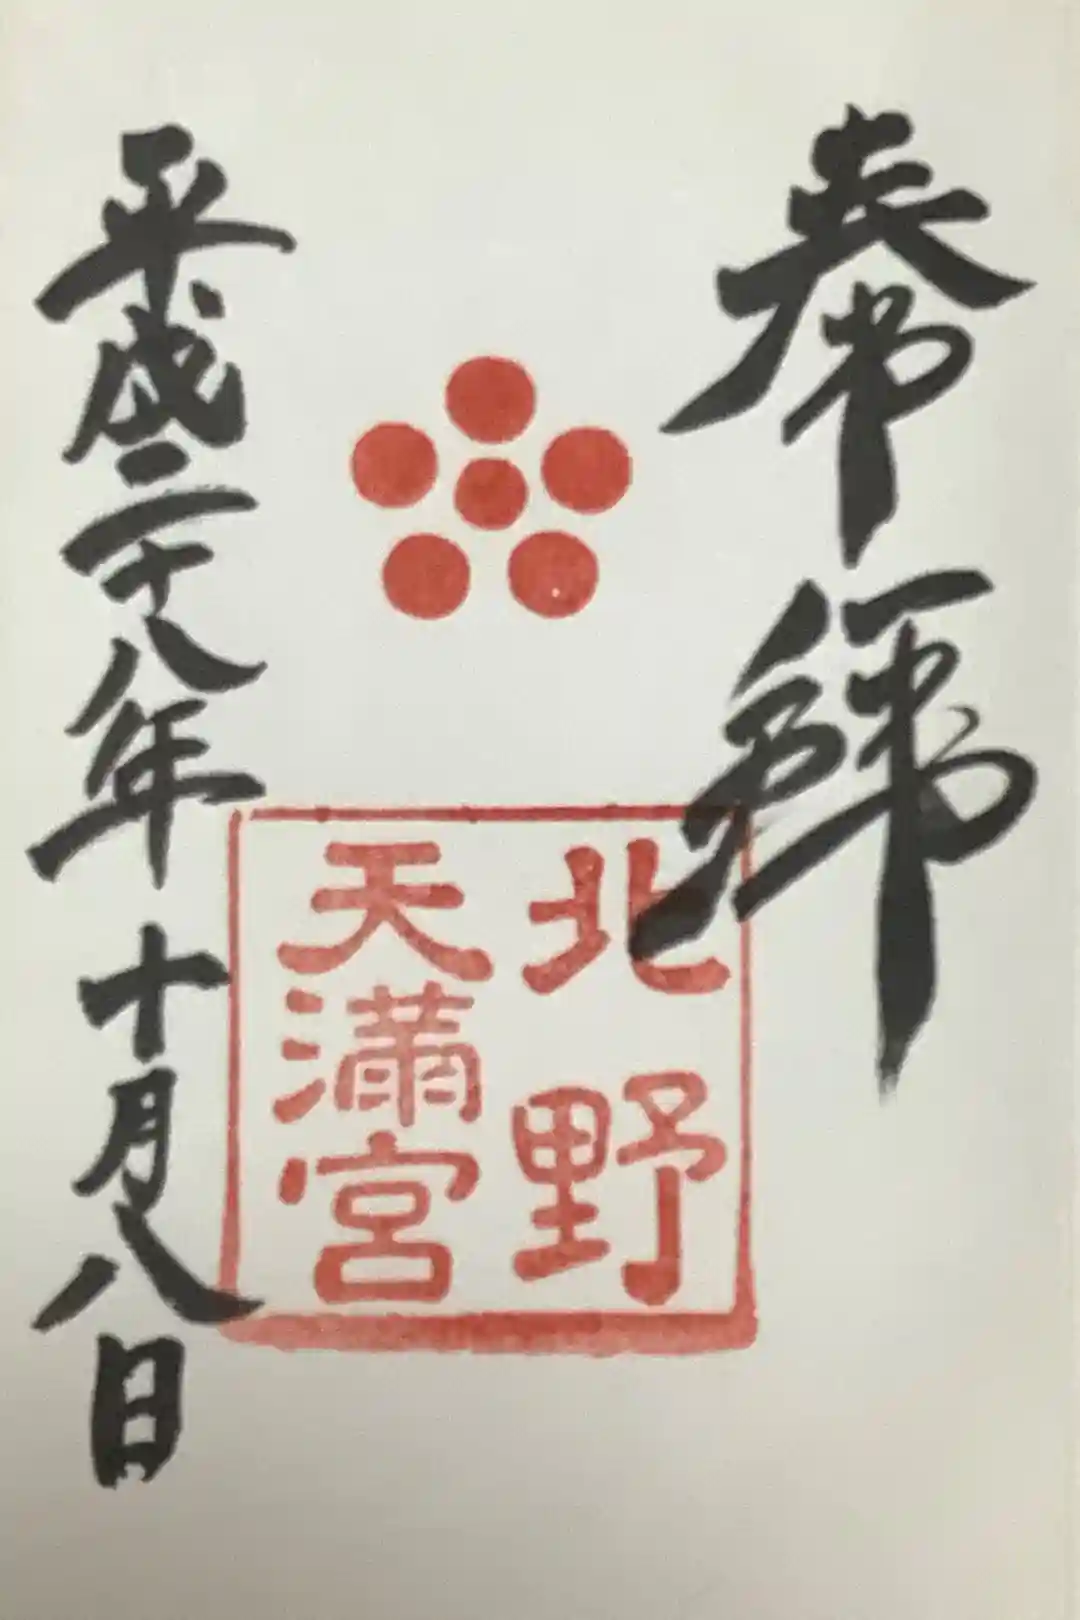 奉拝
北野
天満宮
平成二十八年十月八日